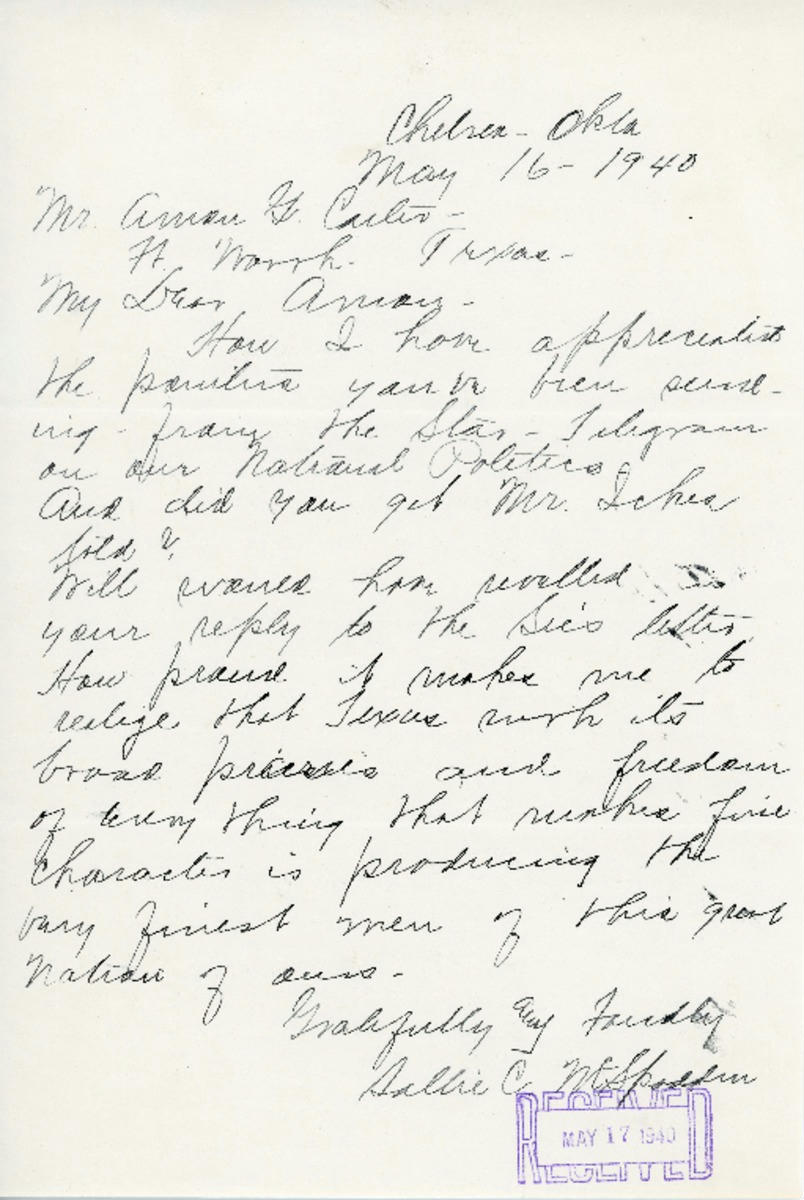 Chelsea - Okla
May 16 - 1940
Mr. Amon G. Carter -
Ft. Worth. Texas -
My Dear Amon -
How I have appreciated
the you've been send-
ing - from the Star - Telegram
on our National Politics.
And did you get Mr. Ickes
told?
Will would have in
your reply to the letter.
How proud it makes me to
realize that Texas with its
broad prairies and freedom
of every thing that makes fine
Character is producing the
very finest men of this great
Nation of ours -
Gratefully and Fondly
Sallie C. McSpadden
RECEIVED
MAY 17 1940